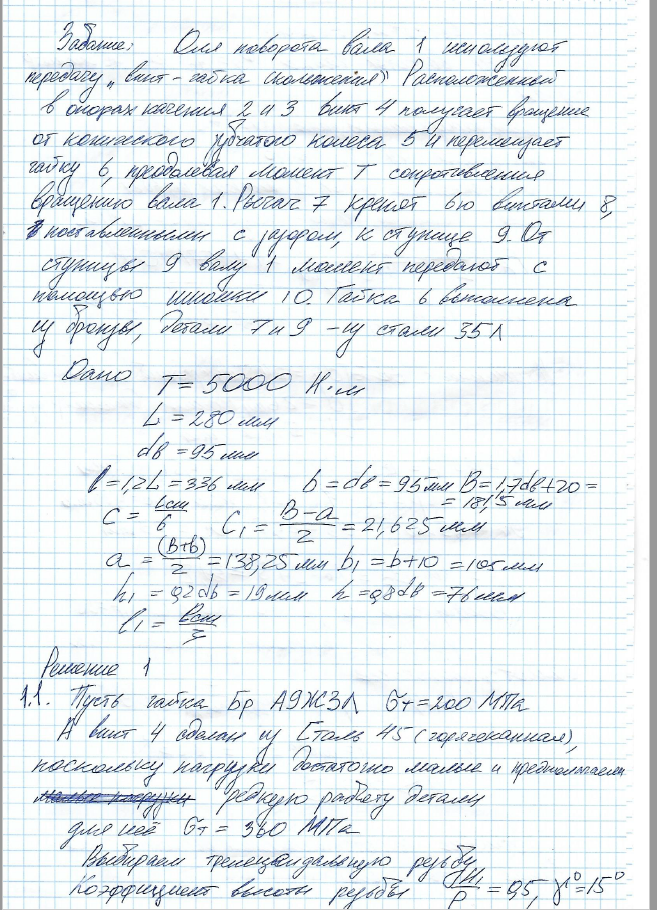 Задание: Для поворота вала 1 используют
передачу „винт – гайка скольжения" Расположенный
в опорах качения 2 и 3 винт 4 получает вращение
от конического зубчатого колеса 5 и перемещает
гайку 6, преодолевая момент T сопротивления
вращению вала 1. Рычаг 7 крепят 6ю винтами 8,
поставленными с зазором, к ступице 9. От
ступицы 9 валу 1 момент передают с
помощью шпонки 10. Гайка 6 выполнена
из бронзы, детали 7 и 9 – из стали 35Л
Дано T = 5000 Н·м
L = 280 мм
dв = 95 мм
l = 1,2L = 336 мм b = dв = 95 мм B = 1,7dв + 20 =
= 181,5 мм
C = lст/6 C₁ = (B – a)/2 = 21,625 мм
a = (B+b)/2 = 138,25 мм b₁ = b + 10 = 105 мм
h₁ = 0,2dв = 19 мм h = 0,8dв = 76 мм
l₁ = lст/3
Решение 1
1.1. Пусть гайка Бр А9Ж3Л σт = 200 МПа
А винт 4 сделан из Сталь 45 (горячекатанная),
поскольку нагрузки достаточно малые и предполагаем
редкую работу детали
для неё σт = 360 МПа
Выбираем трапецеидальную резьбу
Коэффициент высоты резьбы H₁/P = 0,5, γ° = 15°